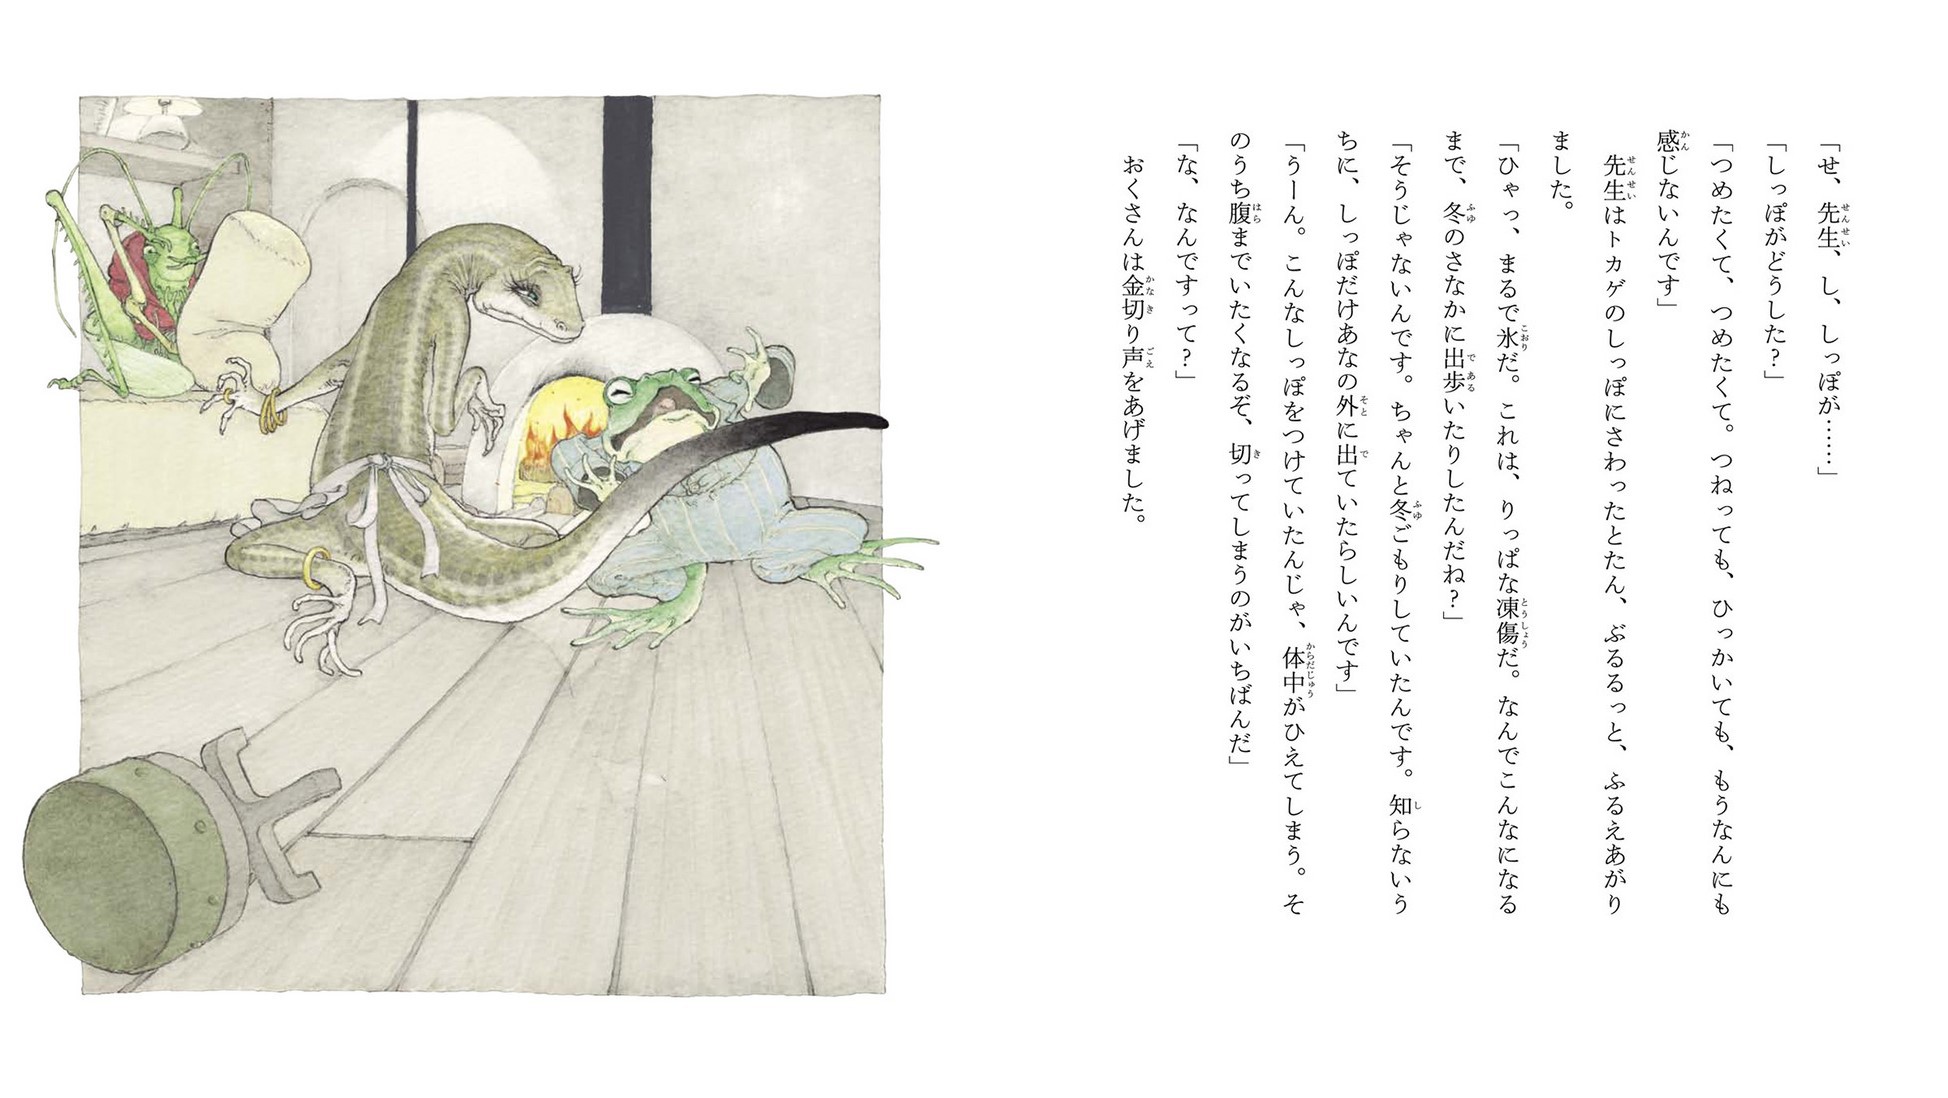 「せ、先生、し、しっぽが……」
「しっぽがどうした?」
「つめたくて、つめたくて。つねっても、ひっかいても、もうなんにも
感じないんです」
先生はトカゲのしっぽにさわったとたん、ぶるるっと、ふるえあがり
ました。
「ひゃっ、まるで氷だ。これは、りっぱな凍傷だ。なんでこんなになる
まで、冬のさなかに出歩いたりしたんだね?」
「そうじゃないんです。ちゃんと冬ごもりしていたんです。知らないう
ちに、しっぽだけあなの外に出ていたらしいんです」
「うーん。こんなしっぽをつけていたんじゃ、体中がひえてしまう。そ
のうち腹までいたくなるぞ、切ってしまうのがいちばんだ」
「な、なんですって?」
おくさんは金切り声をあげました。